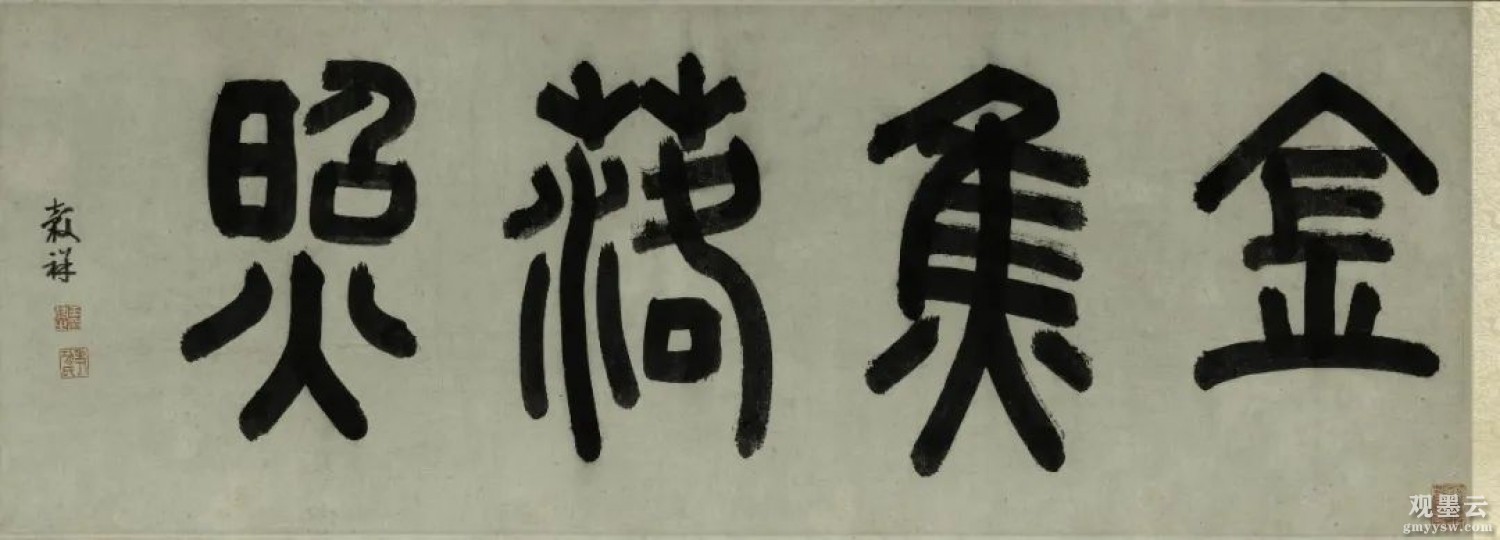 金焦落照
穀祥
观墨云
gmyysw.com